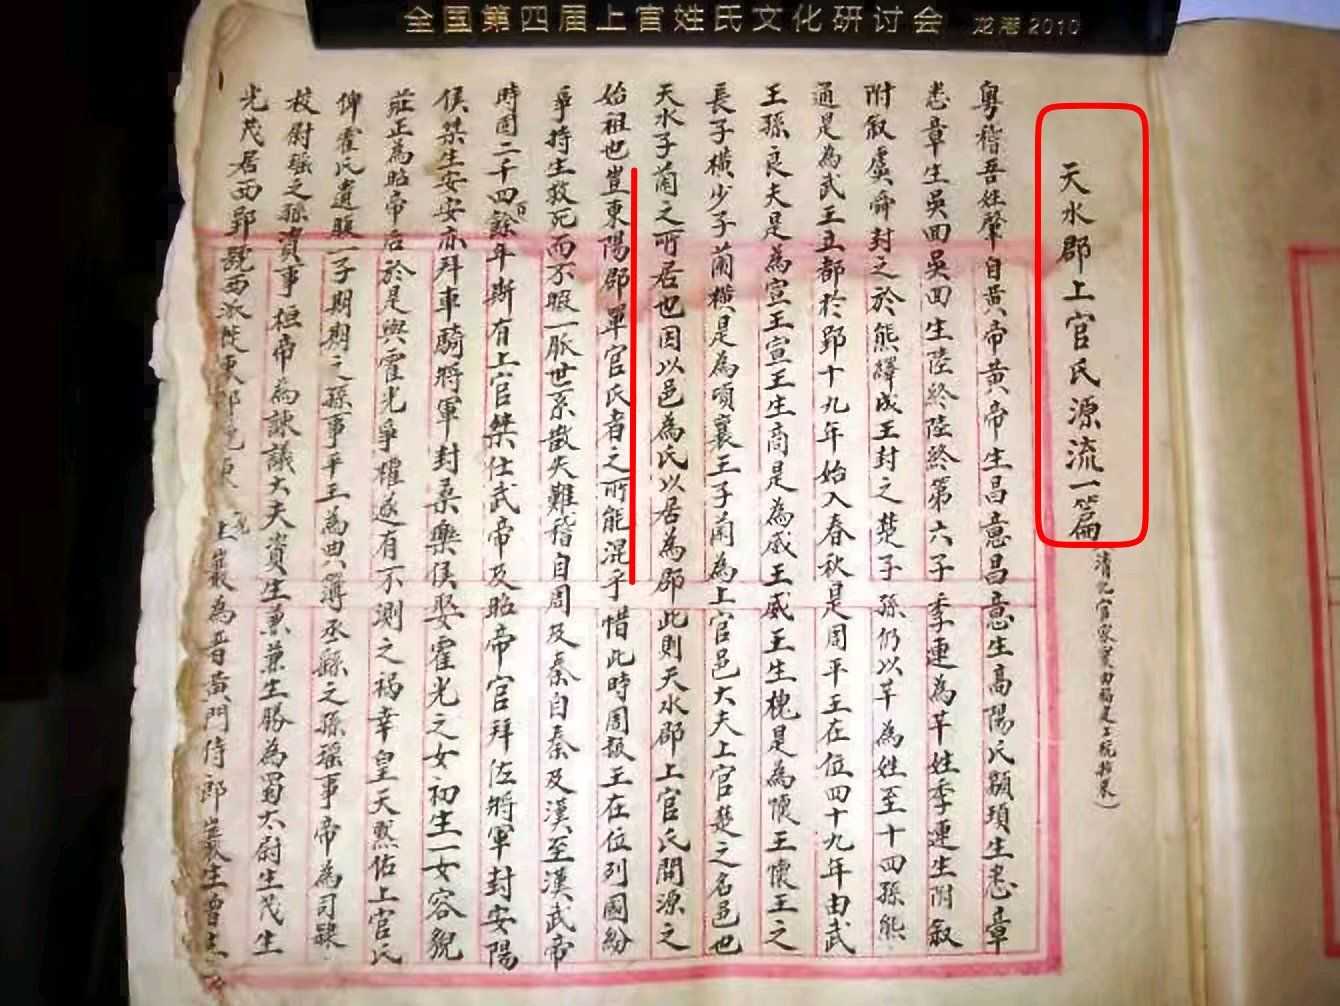 全国第四届上官姓氏文化研讨会 龙港2010
天水郡上官氏源流一篇
粤稽吾姓肇自黄帝黄帝生昌意昌意生高陽氏顓頊生悉章
悉章生吳回吳回生陸終陸終第六子季連為芊姓季連生附叙
附叙虞舜封之於熊繹成王封之楚子孫仍以芊為姓至十四孫熊
通是為武王立都於郢十九年始入春秋是周平王在位四十九年由武
王孫良夫是為宣王宣王生商是為威王威王生槐是為懷王懷王之
長子横少子蘭横是為頃襄王子蘭為上官邑大夫上官楚之名邑也
天水子蘭之所居也因以邑為氏以居為郡此則天水郡上官氏開源之
始祖也豈東陽郡單官氏者之所能混乎惜此時周赧王在位列國紛
爭持生救死而不暇一脈世系散失難稽自周及秦自秦及漢至漢武帝
時周二千四百餘年斯有上官桀仕武帝及昭帝官拜佐將軍封安陽
侯桀生安安亦拜車騎將軍封桑樂侯娶霍光之女初生一女容貌
莊正為昭帝后於是與霍光爭權遂有不測之禍幸皇天默佑上官氏
俾霍氏遺腹一子期期之孫事平王為典簿丞縣之孫瑶事帝為司隸
校尉瑶之孫資事桓帝為諫議大夫資生兼兼生勝為蜀太尉生茂生
光茂居西郢號西派徙東 生巖為晋黄門侍郎巖生曾